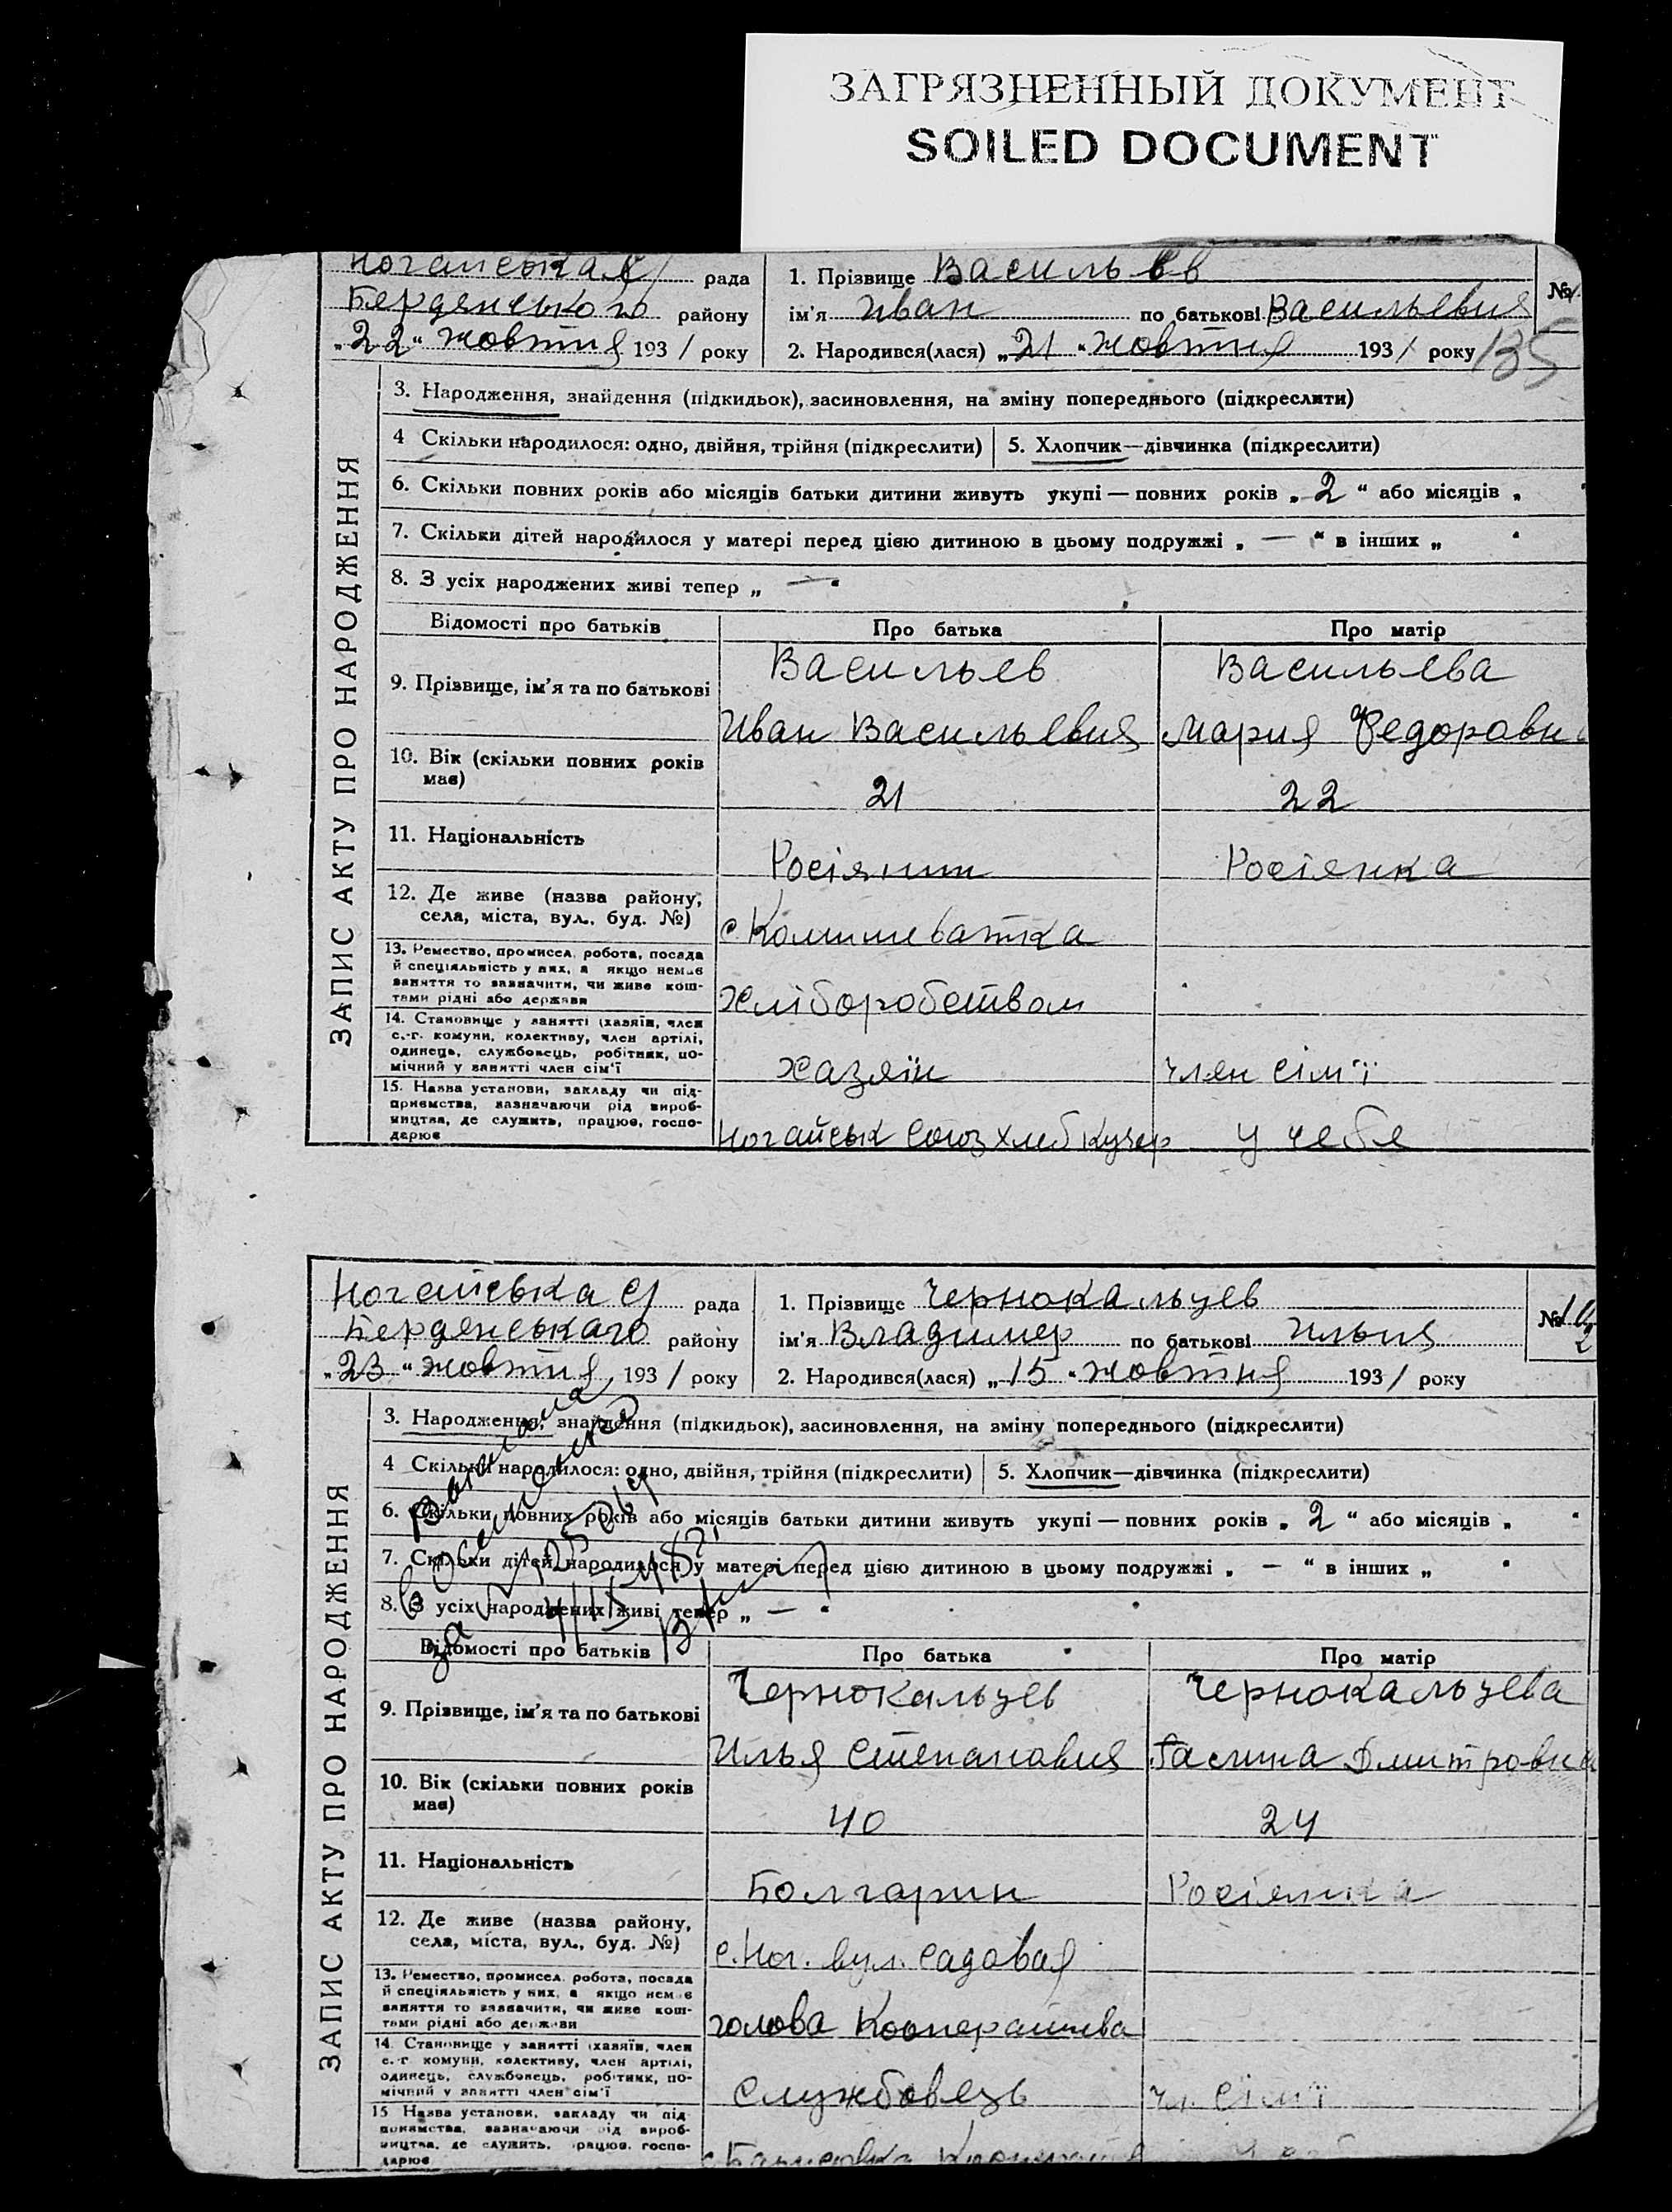 ЗАГРЯЗНЕННЫЙ ДОКУМЕНТ
SOILED DOCUMENT
Ногайська рада
Бердянського району
„22“ жовтня 1931 року
1. Прізвище Васильев
ім'я Иван по батькові Васильевич
2. Народився(лася) „21“ жовтня 1931 року
№
135
ЗАПИС АКТУ ПРО НАРОДЖЕННЯ
3. Народження, знайдення (підкидьок), засиновлення, на зміну попереднього (підкреслити)
4 Скільки народилося: одно, двійня, трійня (підкреслити)
5. Хлопчик—дівчинка (підкреслити)
6. Скільки повних років або місяців батьки дитини живуть укупі — повних років „2“ або місяців „
7. Скільки дітей народилося у матері перед цією дитиною в цьому подружжі „—“ в інших „
8. З усіх народжених живі тепер „—“
Відомості про батьків Про батька Про матір
9. Прізвище, ім'я та по батькові
Васильев Васильева
Иван Васильевич Мария Федоровн
10. Вік (скільки повних років має)
21 22
11. Національність
Росіянин Росіянка
12. Де живе (назва району, села, міста, вул., буд. №)
с. Комишеватка
13. Ремество, промисел, робота, посада й спеціяльність у них, а якщо немає заняття то зазначити, чи живе коштами рідні або держави
Хліборобством
14. Становище у занятті (хазяїн, член с.-г. комуни, колективу, член артілі, одинець, службовець, робітник, помічний у занятті член сім'ї
Хазяїн член сім'ї
15. Назва установи, закладу чи підприємства, зазначаючи рід виробництва, де служить, працює, господарює
Ногайськ Союзхлеб Кучер у себя
Ногайська рада
Бердянськаго району
„23“ жовтня 1931 року
1. Прізвище Чернокальцев
ім'я Владимер по батькові Ильич
2. Народився(лася) „15“ жовтня 1931 року
№
ЗАПИС АКТУ ПРО НАРОДЖЕННЯ
3. Народження, знайдення (підкидьок), засиновлення, на зміну попереднього (підкреслити)
4 Скільки народилося: одно, двійня, трійня (підкреслити)
5. Хлопчик—дівчинка (підкреслити)
6. Скільки повних років або місяців батьки дитини живуть укупі — повних років „2“ або місяців „
7. Скільки дітей народилося у матері перед цією дитиною в цьому подружжі „—“ в інших „
8. З усіх народжених живі тепер „—“
Відомості про батьків Про батька Про матір
9. Прізвище, ім'я та по батькові
Чернокальцев Чернокальцева
Илья Степанович Галина Дмитровна
10. Вік (скільки повних років має)
40 24
11. Національність
Болгарин Росіянка
12. Де живе (назва району, села, міста, вул., буд. №)
с. Ног. вул. Садовая
13. Ремество, промисел, робота, посада й спеціяльність у них, а якщо немає заняття то зазначити, чи живе коштами рідні або держави
голова Кооператива
14. Становище у занятті (хазяїн, член с.-г. комуни, колективу, член артілі, одинець, службовець, робітник, помічний у занятті член сім'ї
Службовець чл. сім'ї
15 Назва установи, закладу чи підприємства, зазначаючи рід виробництва, де служить, працює, господарює